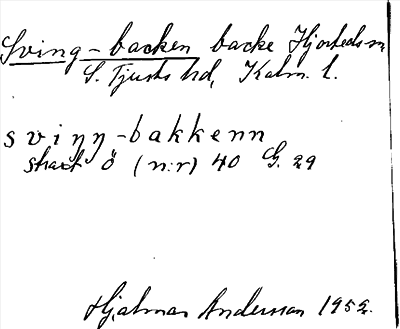 Sving-backen backe Hjorteds sn
S. Tjusts hd, Kalm. l.
sviŋŋ-bakkenn
strax ö (n:r) 40 G. 29
Hjalmar Andersson 1952.